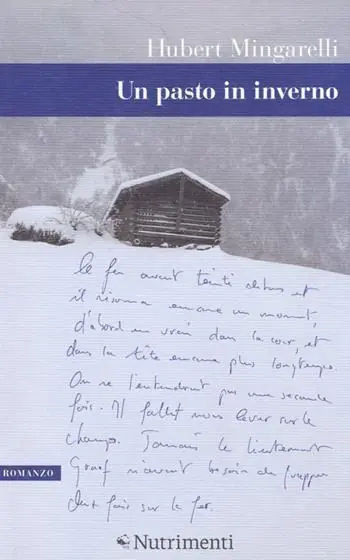 Hubert Mingarelli
Un pasto in inverno
le fer avait tinté dehors et
il résonna encore un moment,
d'abord en vrai dans la cour, et
dans la tête encore plus longtemps.
On ne l'entendrait pas une seconde
fois. Il fallait nous lever sur le
champ. Jamais le lieutenant
Graaf n'avait besoin de frapper
deux fois sur le fer.
ROMANZO
Nutrimenti